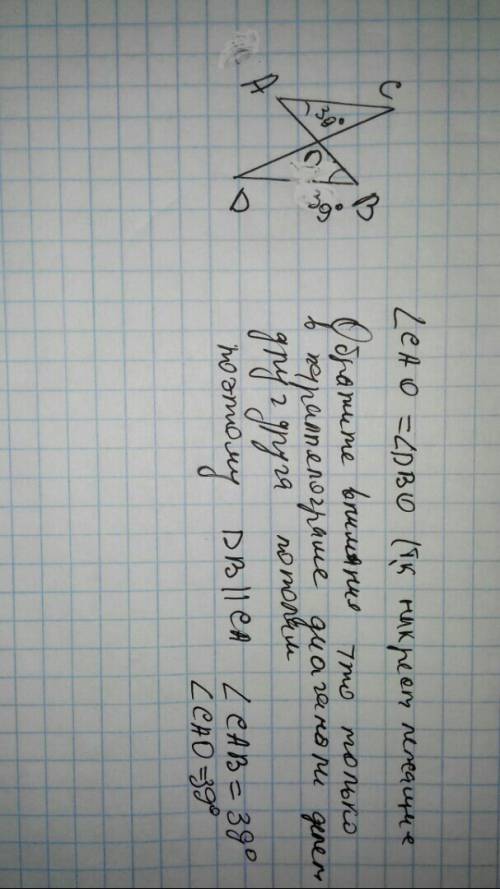 A
C
39°
O
B
39°
D
∠CAO = ∠DBO (т.к накрест лежащие
Обратите внимание что только
в параллелограме диагонали делет
друг друга пополам
поэтому DB || CA ∠CAB = 39°
∠CAO = 39°